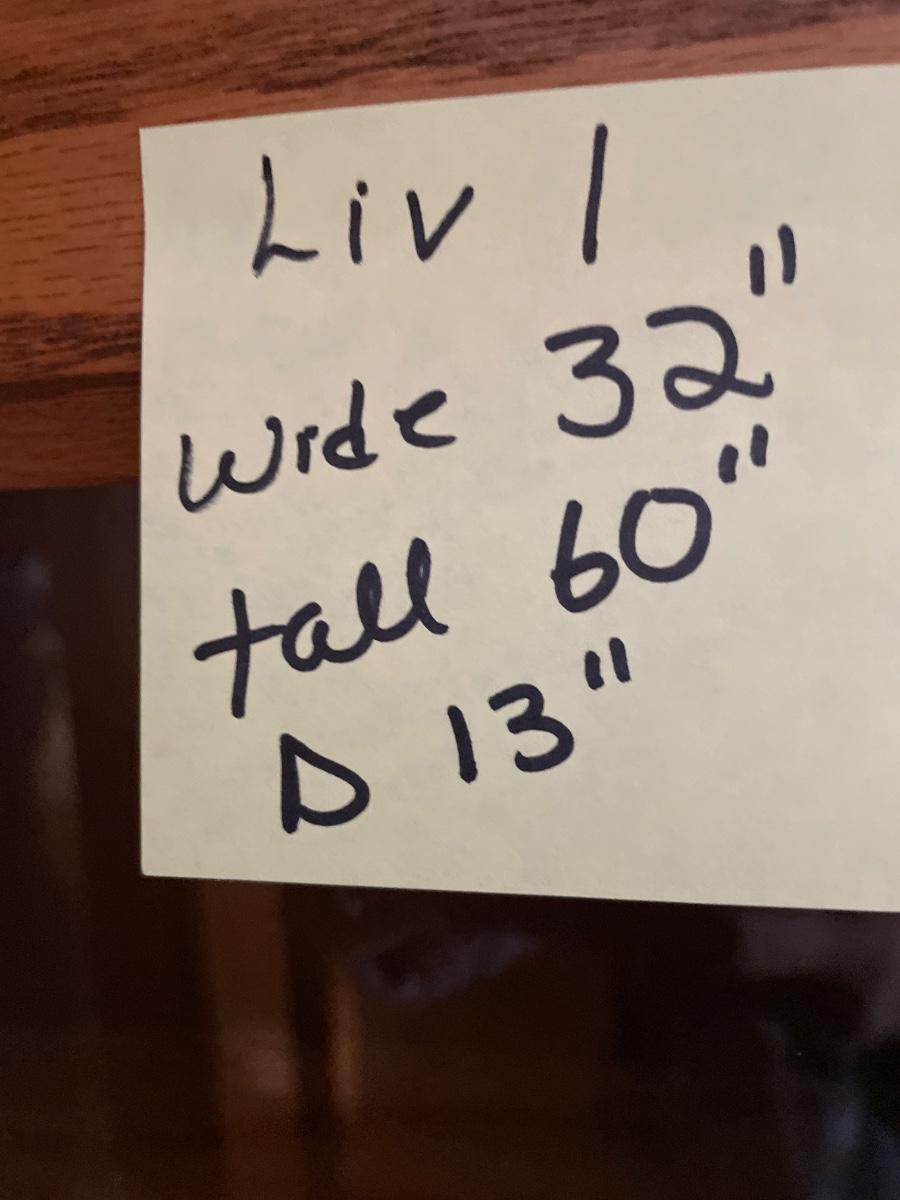 Liv 1
Wide 32"
tall 60"
D 13"